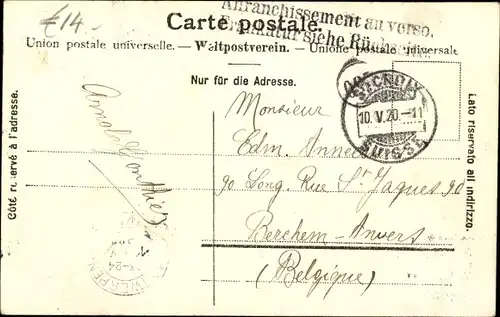 £14.-
Affranchissement au verso.
Carte postale.
Frankatur siehe Rückseite.
Union postale universelle. — Weltpostverein. — Unione postale universale
Nur für die Adresse.
Côté réservé à l'adresse.
Lato riservato all'indirizzo.
Arnold
Monsieur
Edm.
90 Long. Rue St Jaques 90
Berchem-Anvers
(Belgique)
10.V.20.-11
SUISSE